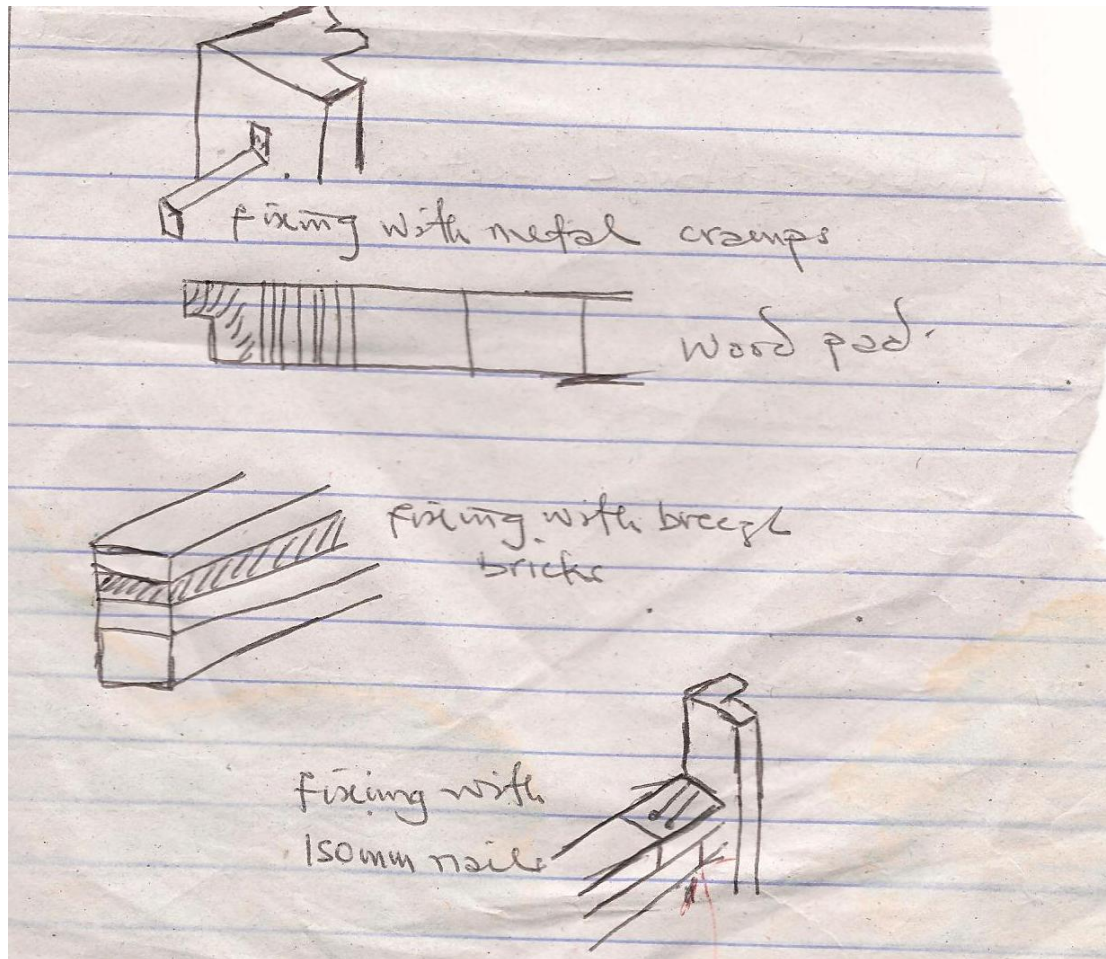 fixing with metal cramps
wood pad
fixing with breeze
bricks
fixing with
150mm nails